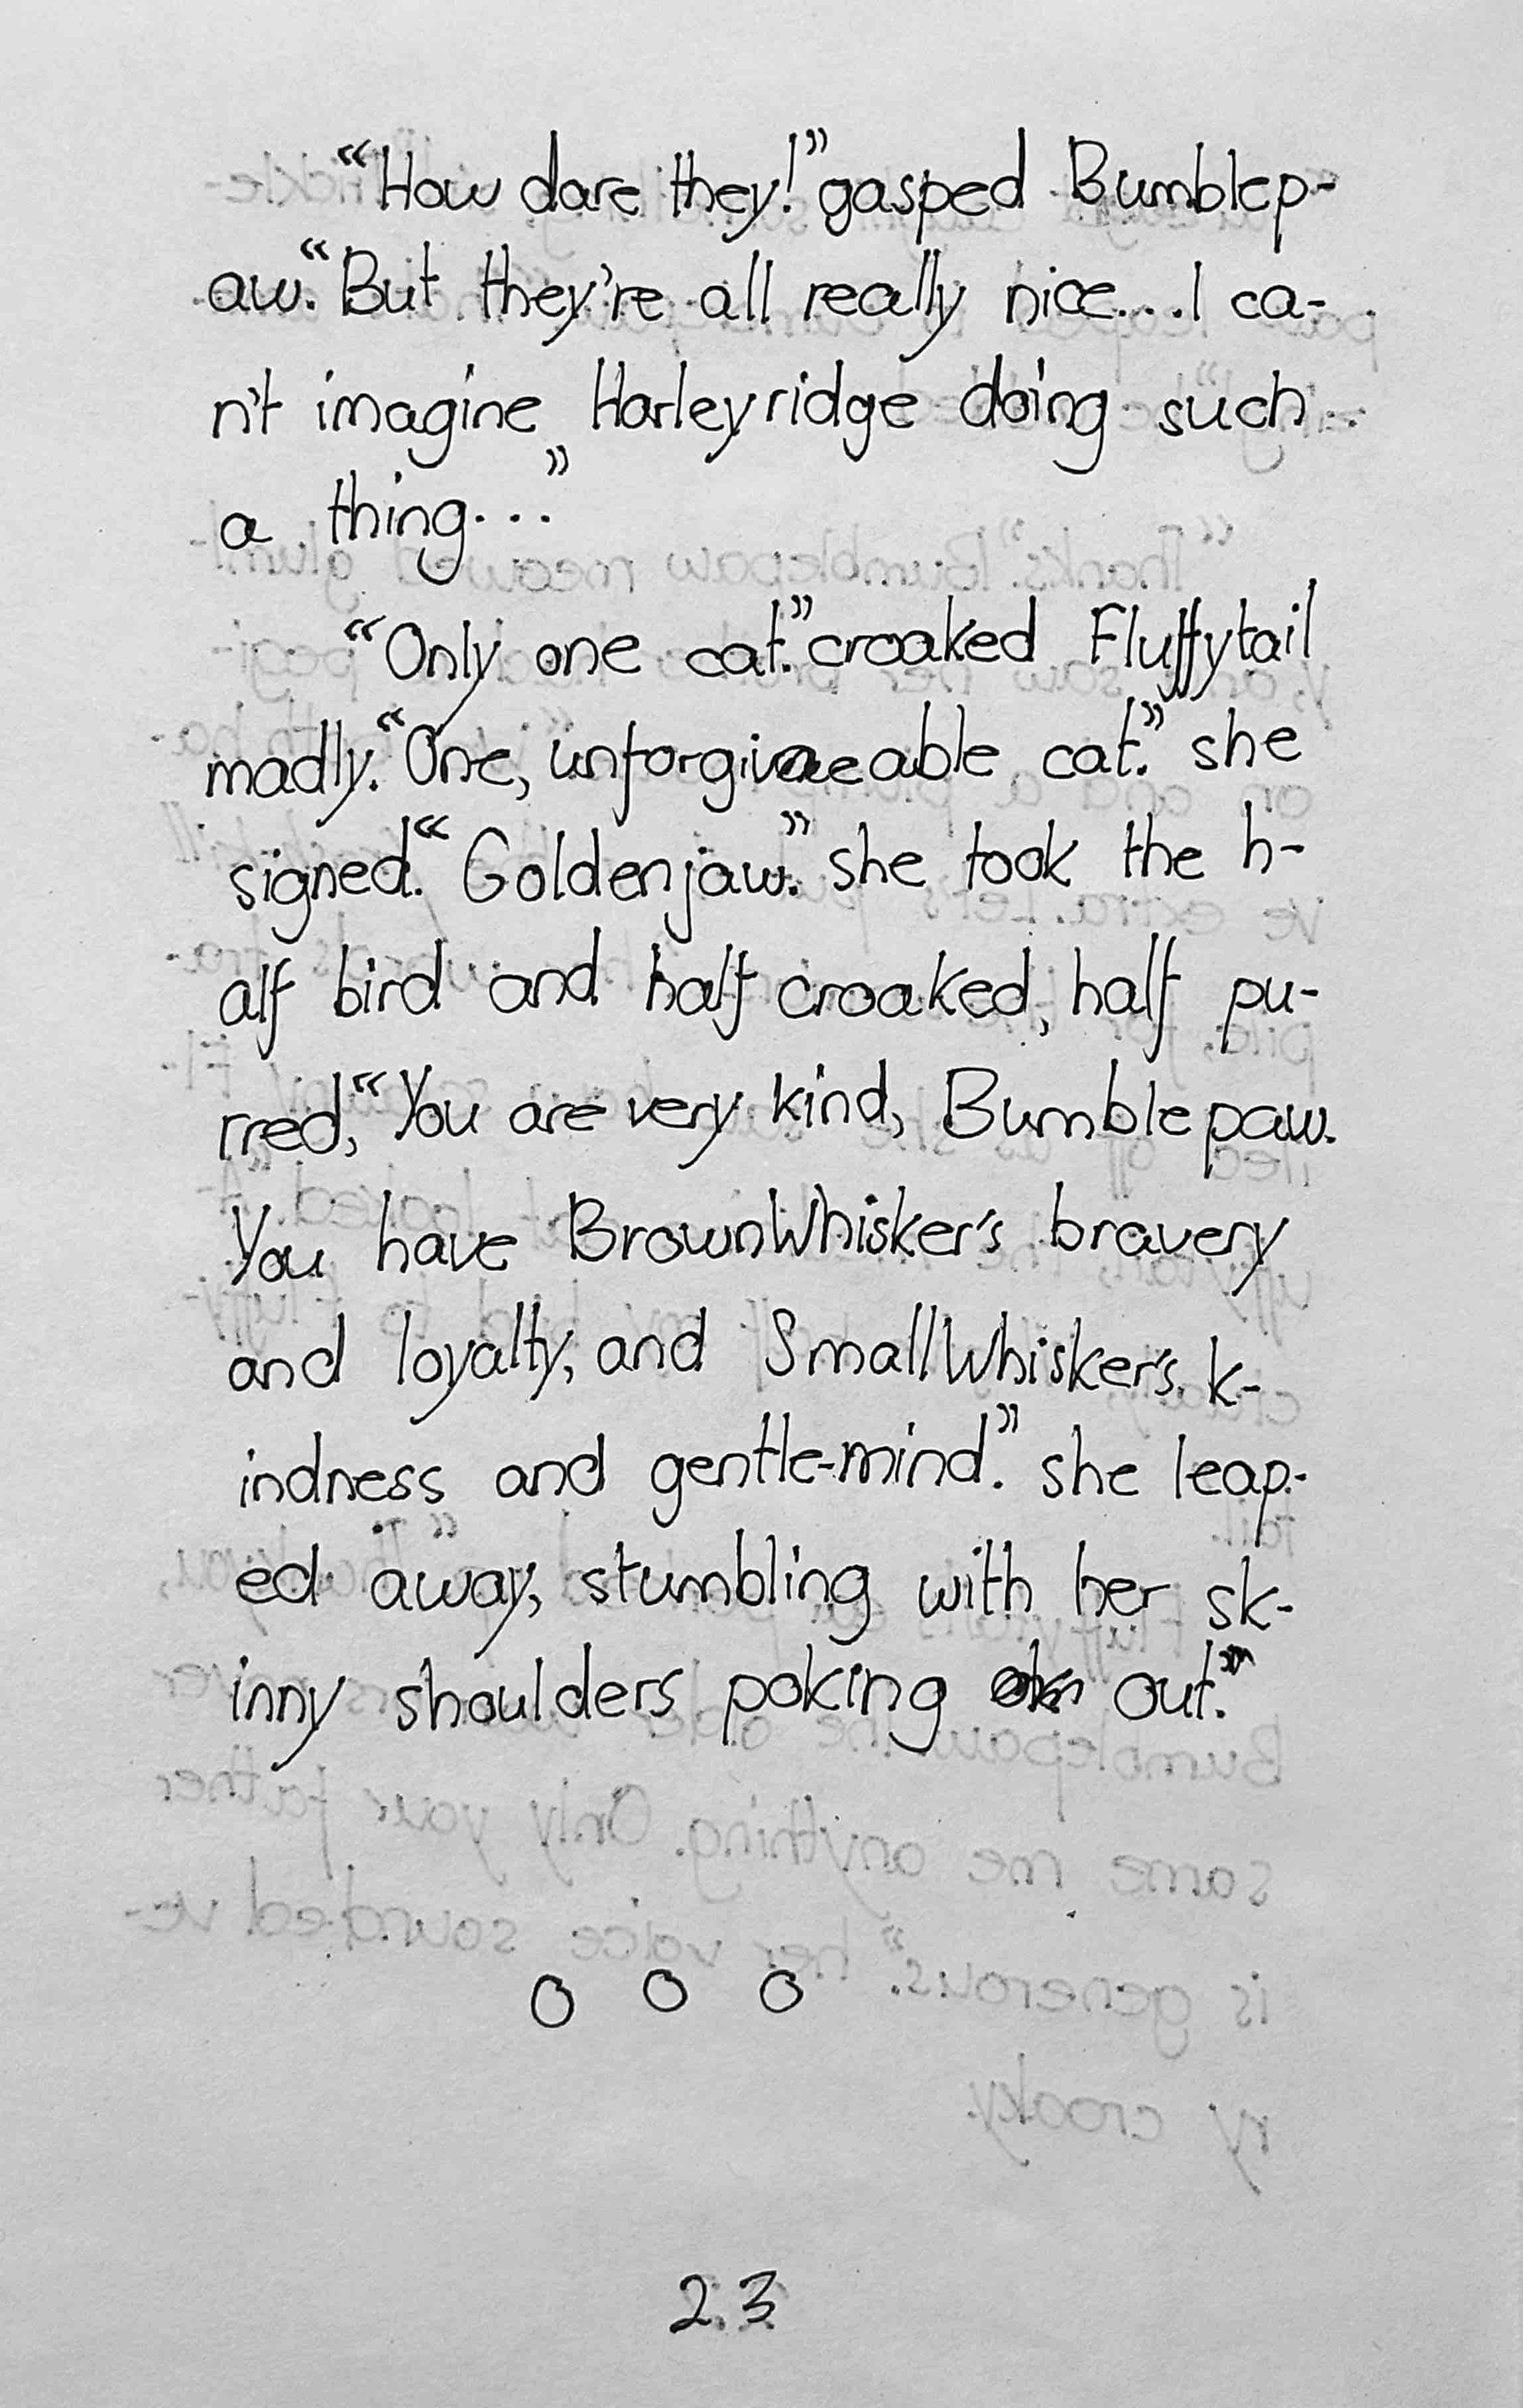 “How dare they!” gasped Bumblep-
aw. “But they're all really nice....I ca-
n't imagine Harleyridge doing such
a thing...”
“Only one cat.” croaked Fluffytail
madly. “One, unforgiveable cat.” she
signed. “Goldenjaw.” she took the h-
alf bird and half croaked, half pu-
rred, “You are very kind, Bumblepaw.
You have BrownWhisker's bravery
and loyalty, and SmallWhisker's k-
indness and gentle-mind.” she leap-
ed away, stumbling with her sk-
inny shoulders poking out.”
o o o
23